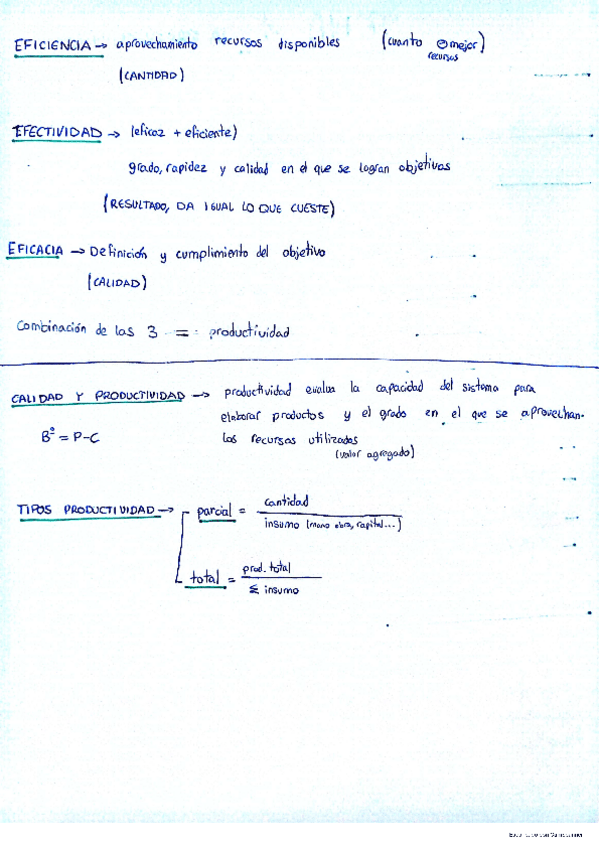 EFICIENCIA → aprovechamiento recursos disponibles (cuanto ⊖ mejor)
recursos
(CANTIDAD)
EFECTIVIDAD → (eficaz + eficiente)
grado, rapidez y calidad en el que se logran objetivos
(RESULTADO, DA IGUAL LO QUE CUESTE)
EFICACIA → Definición y cumplimiento del objetivo
(CALIDAD)
Combinación de las 3 = productividad
CALIDAD Y PRODUCTIVIDAD → productividad evalua la capacidad del sistema para
elaborar productos y el grado en el que se aprovechan
B⁰ = P-C los recursos utilizados
(valor agregado)
TIPOS PRODUCTIVIDAD → parcial = cantidad
insumo (mano obra, capital...)
total = prod. total
Σ insumo